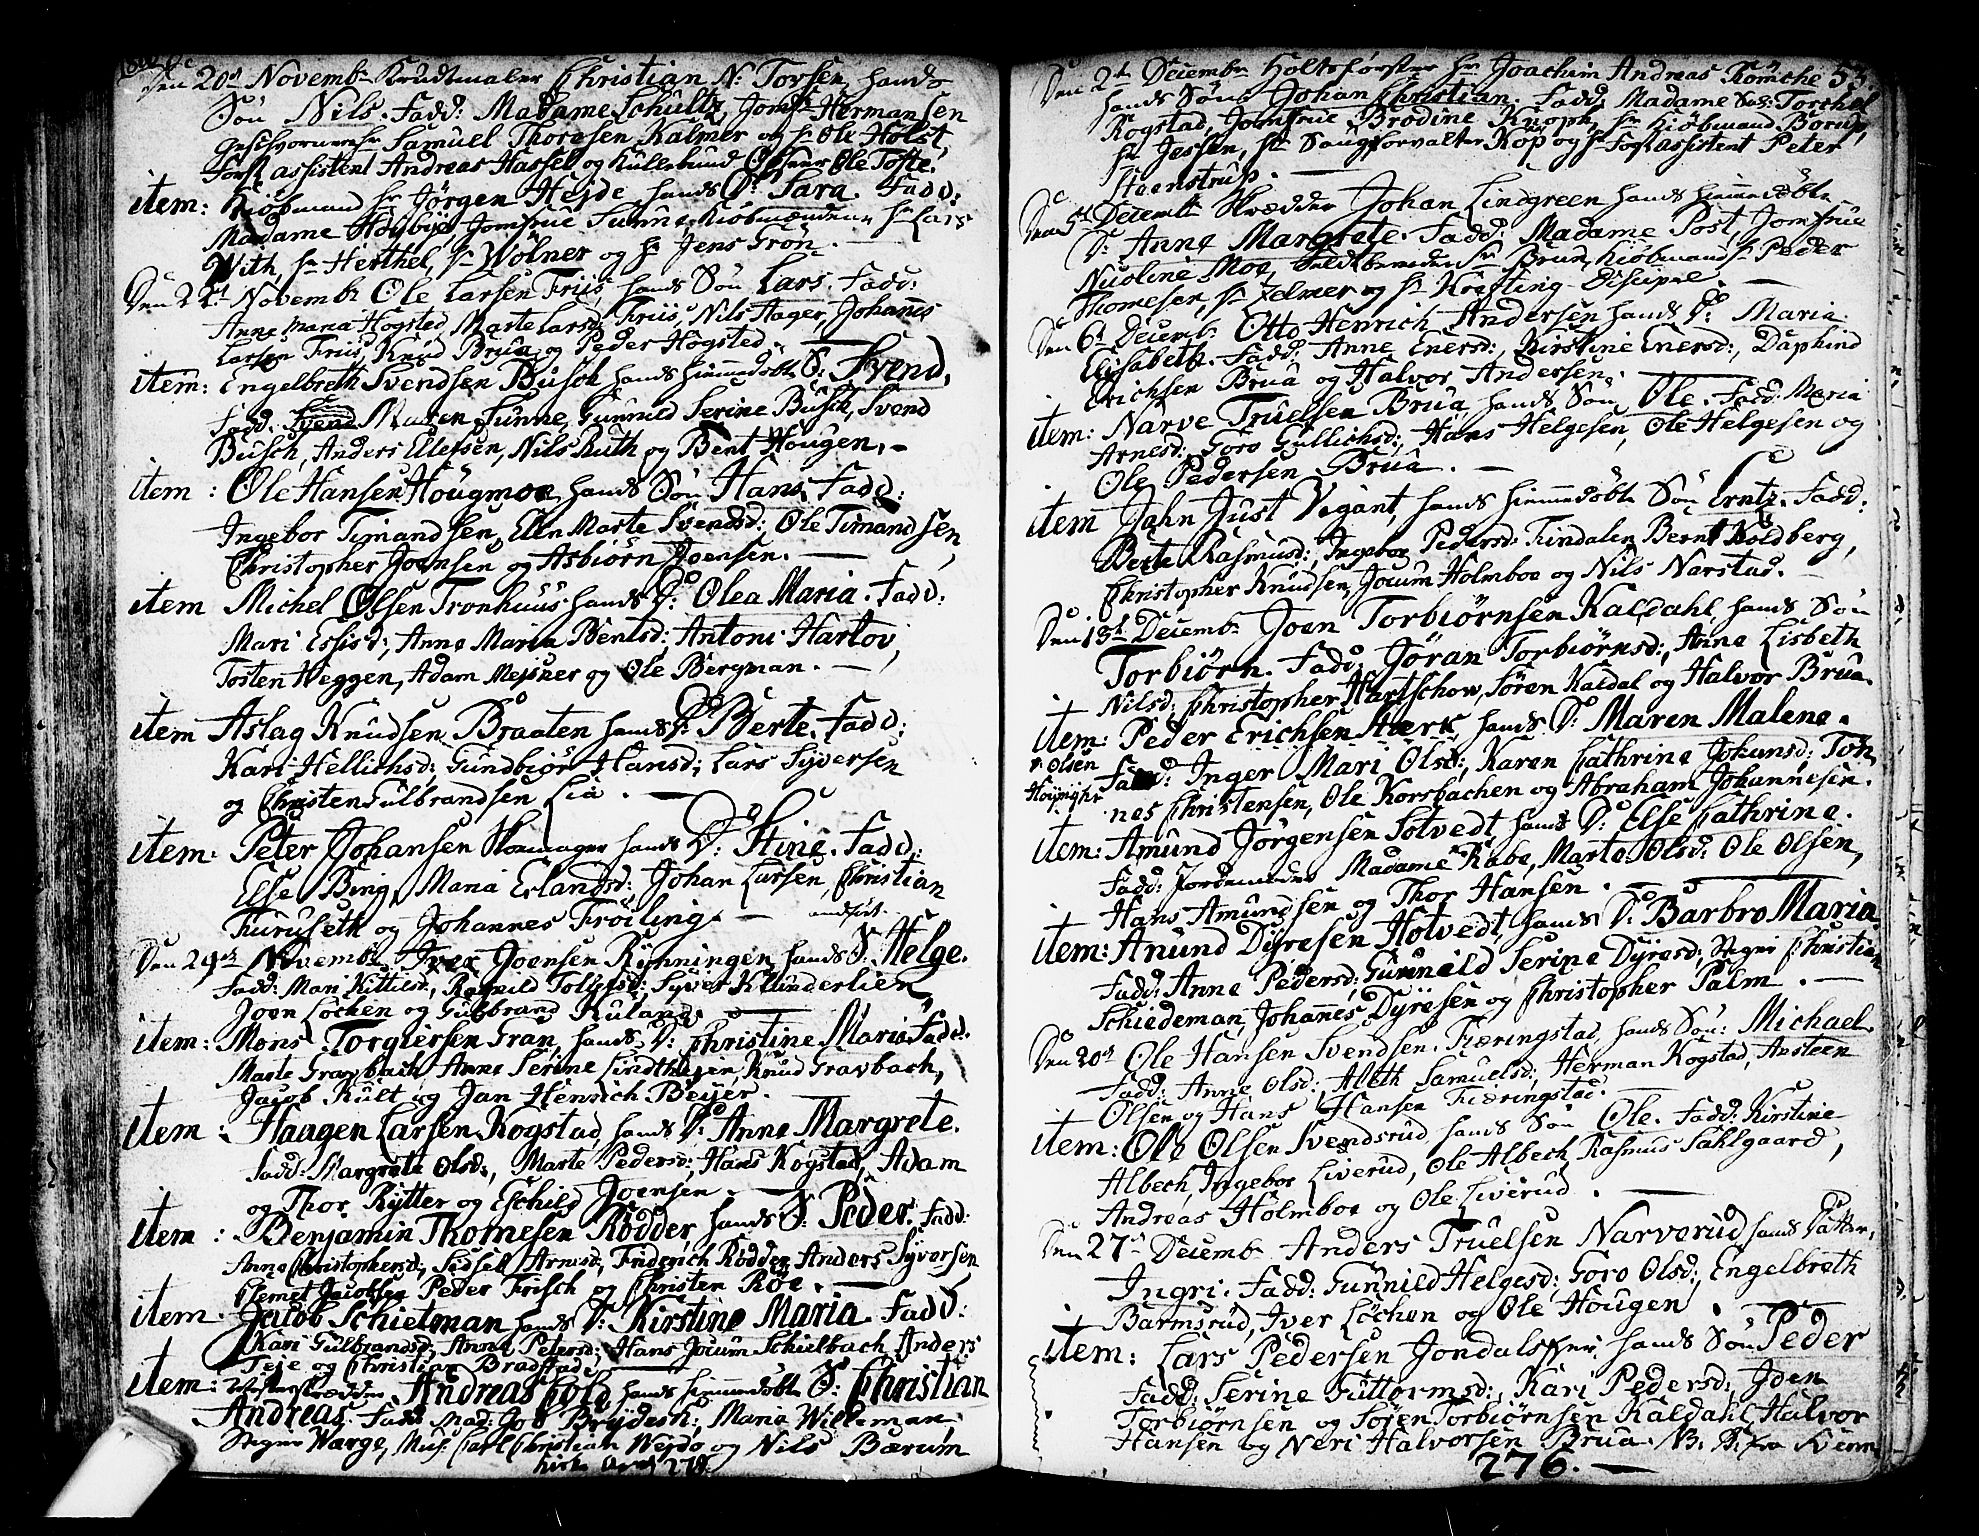 Den 20de Novembr Krudtmaler Christian N: Torsen hands
Søn Nils. Fadd: Madame Schultz, Jomfr Hermansen
Geschworner Hr Samuel Thoresen Kalmer og Hr Ole Holst,
Forst assistent Andreas Hassel og Kullebund Ole Tofte.
item: Kiøbmand Hr Jörgen Hejde hands D: Sara. Fadd:
Madame Høybye, Jomfrue Sunne, Kiøbmændene Hr Lars
With, Hr Herthel, Hr Wölner og Hr Jens Grön. —
Den 22d Novembr Ole Larsen Friis, hands Søn Lars. Fadd:
Anne Maria Hogsted, Marte Larsd: Friis, Nils Aager, Johanes
Larsen Friis, Knud Brua og Peder Hogsted.
item: Engelbreth Svendsen Busch hands hiemmedöbte S: Svend.
Fadd: Maren Sunne, Gunnild Serine Busch, Svend
Busch, Anders Ellefsen, Nils Ruth og Bent Hougen. —
item: Ole Hansen Hougmoe hands Søn Hans. Fadd:
Ingebor Timandsen, Ellen Marte Svendsd: Ole Timandsen,
Christopher Joensen og Asbiörn Joensen. —
item Michel Olsen Tronhuus hands D: Olea Maria. Fadd:
Mari Essisd:, Anne Maria Bentsd:, Antoni Hartov,
Tosten Heggen, Adam Mejsner og Ole Bergman. —
item Aslag Knudsen Braaten hands D: Berte. Fadd:
Kari Hellichsd: Gundbiör Hansd:, Lars Syversen
og Christen Gulbrandsen Lia. —
item: Peter Johansen Skomager hands D: Stine. Fadd:
Else Bing, Maria Erlandsd: Johan Larsen, Christian
Furuseth og Johannes Fröiling. —
Den 29de Novembr Iver Joensen Rynningen hands S: Helge.
Fadd: Mari Kittilsd:, Ragnild Tolefsd:, Syver Klunderlien,
Joen Löchen og Gulbrand Ruland.
item: Mons Torgiersen Gran, hands D: Christine Maria. Fadd:
Marte Gravbach, Anne Serine Lindthejen, Knud Gravbach,
Jacob Kult og Jan Henrich Bejer.
item: Haagen Larsen Kogstad, hands D: Anne Margrete.
Fadd: Margrete Olsd:, Marte Pedersd:, Hans Kogstad, Adam
og Thor Rytter og Eschild Joensen. —
item: Benjamin Thomesen Rödder, hands S: Peder. Fadd:
Anne Christophersd:, Sidsel Arnesd:, Friderich Rödder, Anders Syversen
Clemet Jacobsen, Peder Frisch og Christen Roe. —
item. Jacob Schietman hands D: Kirstine Maria. Fadd:
Kari Gulbrandsd:, Anne Petersd:, Hans Jocum Schielbach, Anders
Teje og Christian Bradstad.
item: Andreas Cold hands hiemmedöbte S: Christian
Andreas. Fadd: Mad: Job Brydesk:, Maria Willeman,
Segni Warge, Mus: Carl Christian Werdø og Nils Bærum
Den 2d Decembr Holtsförster Hr Joachim Andreas Römche 53.
hands Søn Johan Christian. Fadd: Madame Torchel
Kogstad, Jomfrue Brodine Knoph, Hr Kiøbmand Borup,
Hr Jessen, Hr Saugforvalter Kop og Hr Forstassistent Peter
Steenstrup. —
Den 5d Decembr Skrædder Johan Lindgreen hands hiemmedöbte
D: Anne Margrete. Fadd: Madame Post, Jomfrue
Nicoline Moe, Feldbereder Hr Brun, Kiøbmand Hr Peder
Thomesen, Hr Zelmer og Hr Kræfting Discipel. —
Den 6te Decembr Otto Henrich Andersen hands D: Maria
Elisabeth. Fadd: Anne Enersd:, Kirstine Enersd:, Daphind
Erichsen Brua og Halvor Andersen.
item: Narve Truelsen Brua, hands Søn Ole. Fadd: Maria
Arnesd:, Goro Gullichsd:, Hans Helgesen, Ole Helgesen og
Ole Pedersen Brua. —
item John Just Vigant, hands hiemmedöbte Søn Erntz. Fadd:
Berte Rasmusd:, Ingebor Pedersd: Tindalen, Bernt Koldberg,
Christopher Knudsen, Jocum Holmboe og Nils Narstad. —
Den 13d Decembr Joen Torbiörnsen Kaldahl, hands Søn
Torbiörn. Fadd: Jöran Torbiörnsd:, Anne Lisbeth
Nilsd: Christopher Hartschow, Sören Kaldal og Halvor Brua.
item: Peder Erichsen Stærk, hands D: Maren Malene.
Fadd: Inger Mari Olsd:, Karen Cathrine Johansd: Joh
nes Christensen, Ole Korsbachen og Abraham Johannesen.
item: Amund Jörgensen Sotvedt hands D: Else Cathrine.
Fadd: Jordemoder Madame Rabe, Marte Olsd: Ole Olsen,
Hans Amundsen og Thor Hansen.
item: Anund Dyresen Hotvedt, hands D: Barbro Maria
Fadd: Anne Pedersd:, Gunnild Serine Dyresd:, Segni Christian
Schiedeman, Johanes Dyresen og Christopher Palm. —
Den 20d Ole Hansen Svendsen Fiæringstad, hands Søn: Michael
Fadd: Anne Olsd:, Aleth Samuelsd:, Herman Kogstad, Ansteen
Olsen og Hans Hansen Fiæringstad.
item: Ole Olsen Svendsrud hands Søn Ole. Fadd: Kirstine
Albech, Ingebor Liverud, Ole Albech, Rasmus Sahlgaard,
Andreas Holmboe og Ole Liverud. —
Den 27d Decembr Anders Truelsen Narverud hands Datter,
Ingri. Fadd: Gunnild Helgesd:, Goro Olsd:, Engelbreth
Barmsrud, Iver Löchen og Ole Hougen.
item: Lars Pedersen Jondalsk hands Søn Peder
Fadd: Serine Guttormsd:, Kari Pedersd:, Joen
Torbiörnsen og Sören Torbiörnsen Kaldahl, Halvor
Hansen og Neri Halvorsen Brua.
276. —